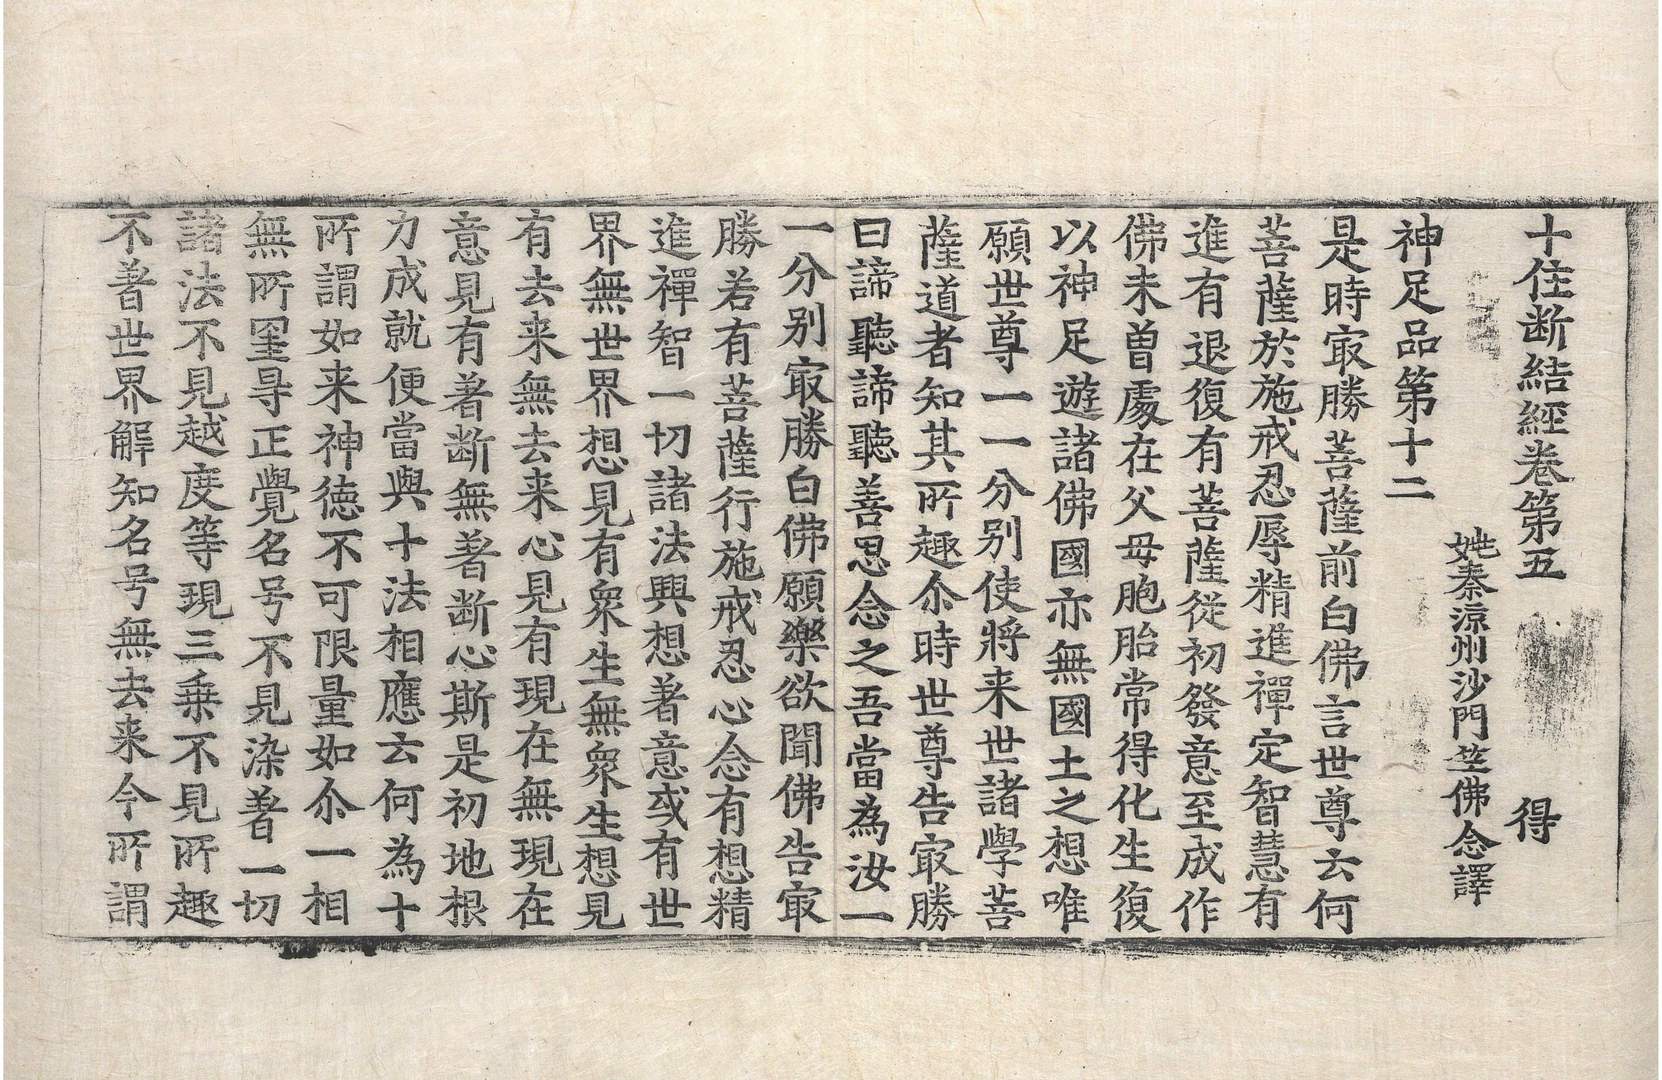 十住断結經卷第五　得
姚秦涼州沙門竺佛念譯
神足品第十二
是時㝡勝菩薩前白佛言世尊云何
菩薩於施戒忍辱精進禪定智慧有
進有退復有菩薩從初發意至成作
佛未曽處在父母胞胎常得化生復
以神足遊諸佛國亦無國土之想唯
願世尊一一分别使將来世諸學菩
薩道者知其所趣尒時世尊告㝡勝
曰諦聽諦聽善思念之吾當為汝一
一分别㝡勝白佛願樂欲聞佛告㝡
勝若有菩薩行施戒忍心念有想精
進禪智一切諸法興想著意或有世
界無世界想見有衆生無衆生想見
有去来無去来心見有現在無現在
意見有著断無著断心斯是初地根
力成就便當與十法相應云何為十
所謂如来神德不可限量如尒一相
無所罣㝵正覺名号不見染著一切
諸法不見越度等現三乗不見所趣
不著世界解知名号無去来今所謂